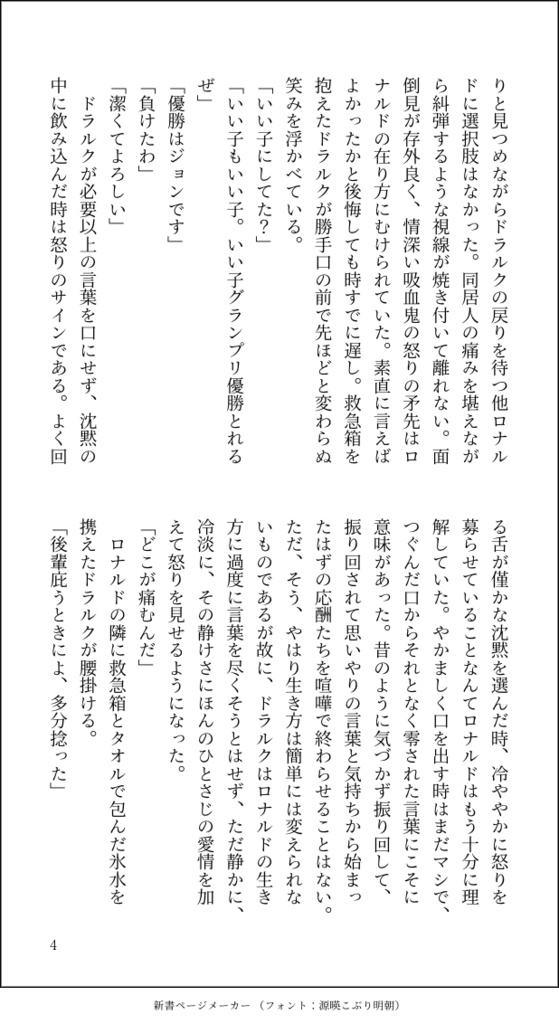 りと見つめながらドラルクの戻りを待つ他ロナル
ドに選択肢はなかった。同居人の痛みを堪えなが
ら糾弾するような視線が焼き付いて離れない。面
倒見が存外良く、情深い吸血鬼の怒りの矛先はロ
ナルドの在り方にむけられていた。素直に言えば
よかったかと後悔しても時すでに遅し。救急箱を
抱えたドラルクが勝手口の前で先ほどと変わらぬ
笑みを浮かべている。
「いい子にしてた？」
「いい子もいい子。いい子グランプリ優勝とれる
ぜ」
「優勝はジョンです」
「負けたわ」
「潔くてよろしい」
　ドラルクが必要以上の言葉を口にせず、沈黙の
中に飲み込んだ時は怒りのサインである。よく回
る舌が僅かな沈黙を選んだ時、冷ややかに怒りを
募らせていることなんてロナルドはもう十分に理
解していた。やかましく口を出す時はまだマシで、
つぐんだ口からそれとなく零された言葉にこそに
意味があった。昔のように気づかず振り回して、
振り回されて思いやりの言葉と気持ちから始まっ
たはずの応酬たちを喧嘩で終わらせることはない。
ただ、そう、やはり生き方は簡単には変えられな
いものであるが故に、ドラルクはロナルドの生き
方に過度に言葉を尽くそうとはせず、ただ静かに、
冷淡に、その静けさにほんのひとさじの愛情を加
えて怒りを見せるようになった。
「どこが痛むんだ」
　ロナルドの隣に救急箱とタオルで包んだ氷水を
携えたドラルクが腰掛ける。
「後輩庇うときによ、多分捻った」
4
新書ページメーカー（フォント：源暎こぶり明朝）